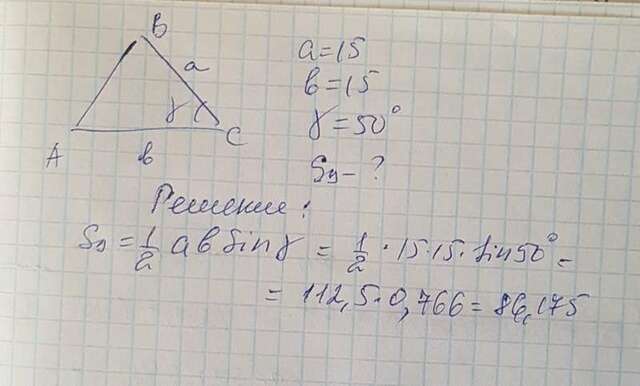 B
a
γ
A
C
b
a=15
b=15
γ=50°
SΔ-?
Решение:
SΔ = 1/2 ab sin γ = 1/2 · 15·15· sin 50° =
= 112,5·0,766 = 86,175